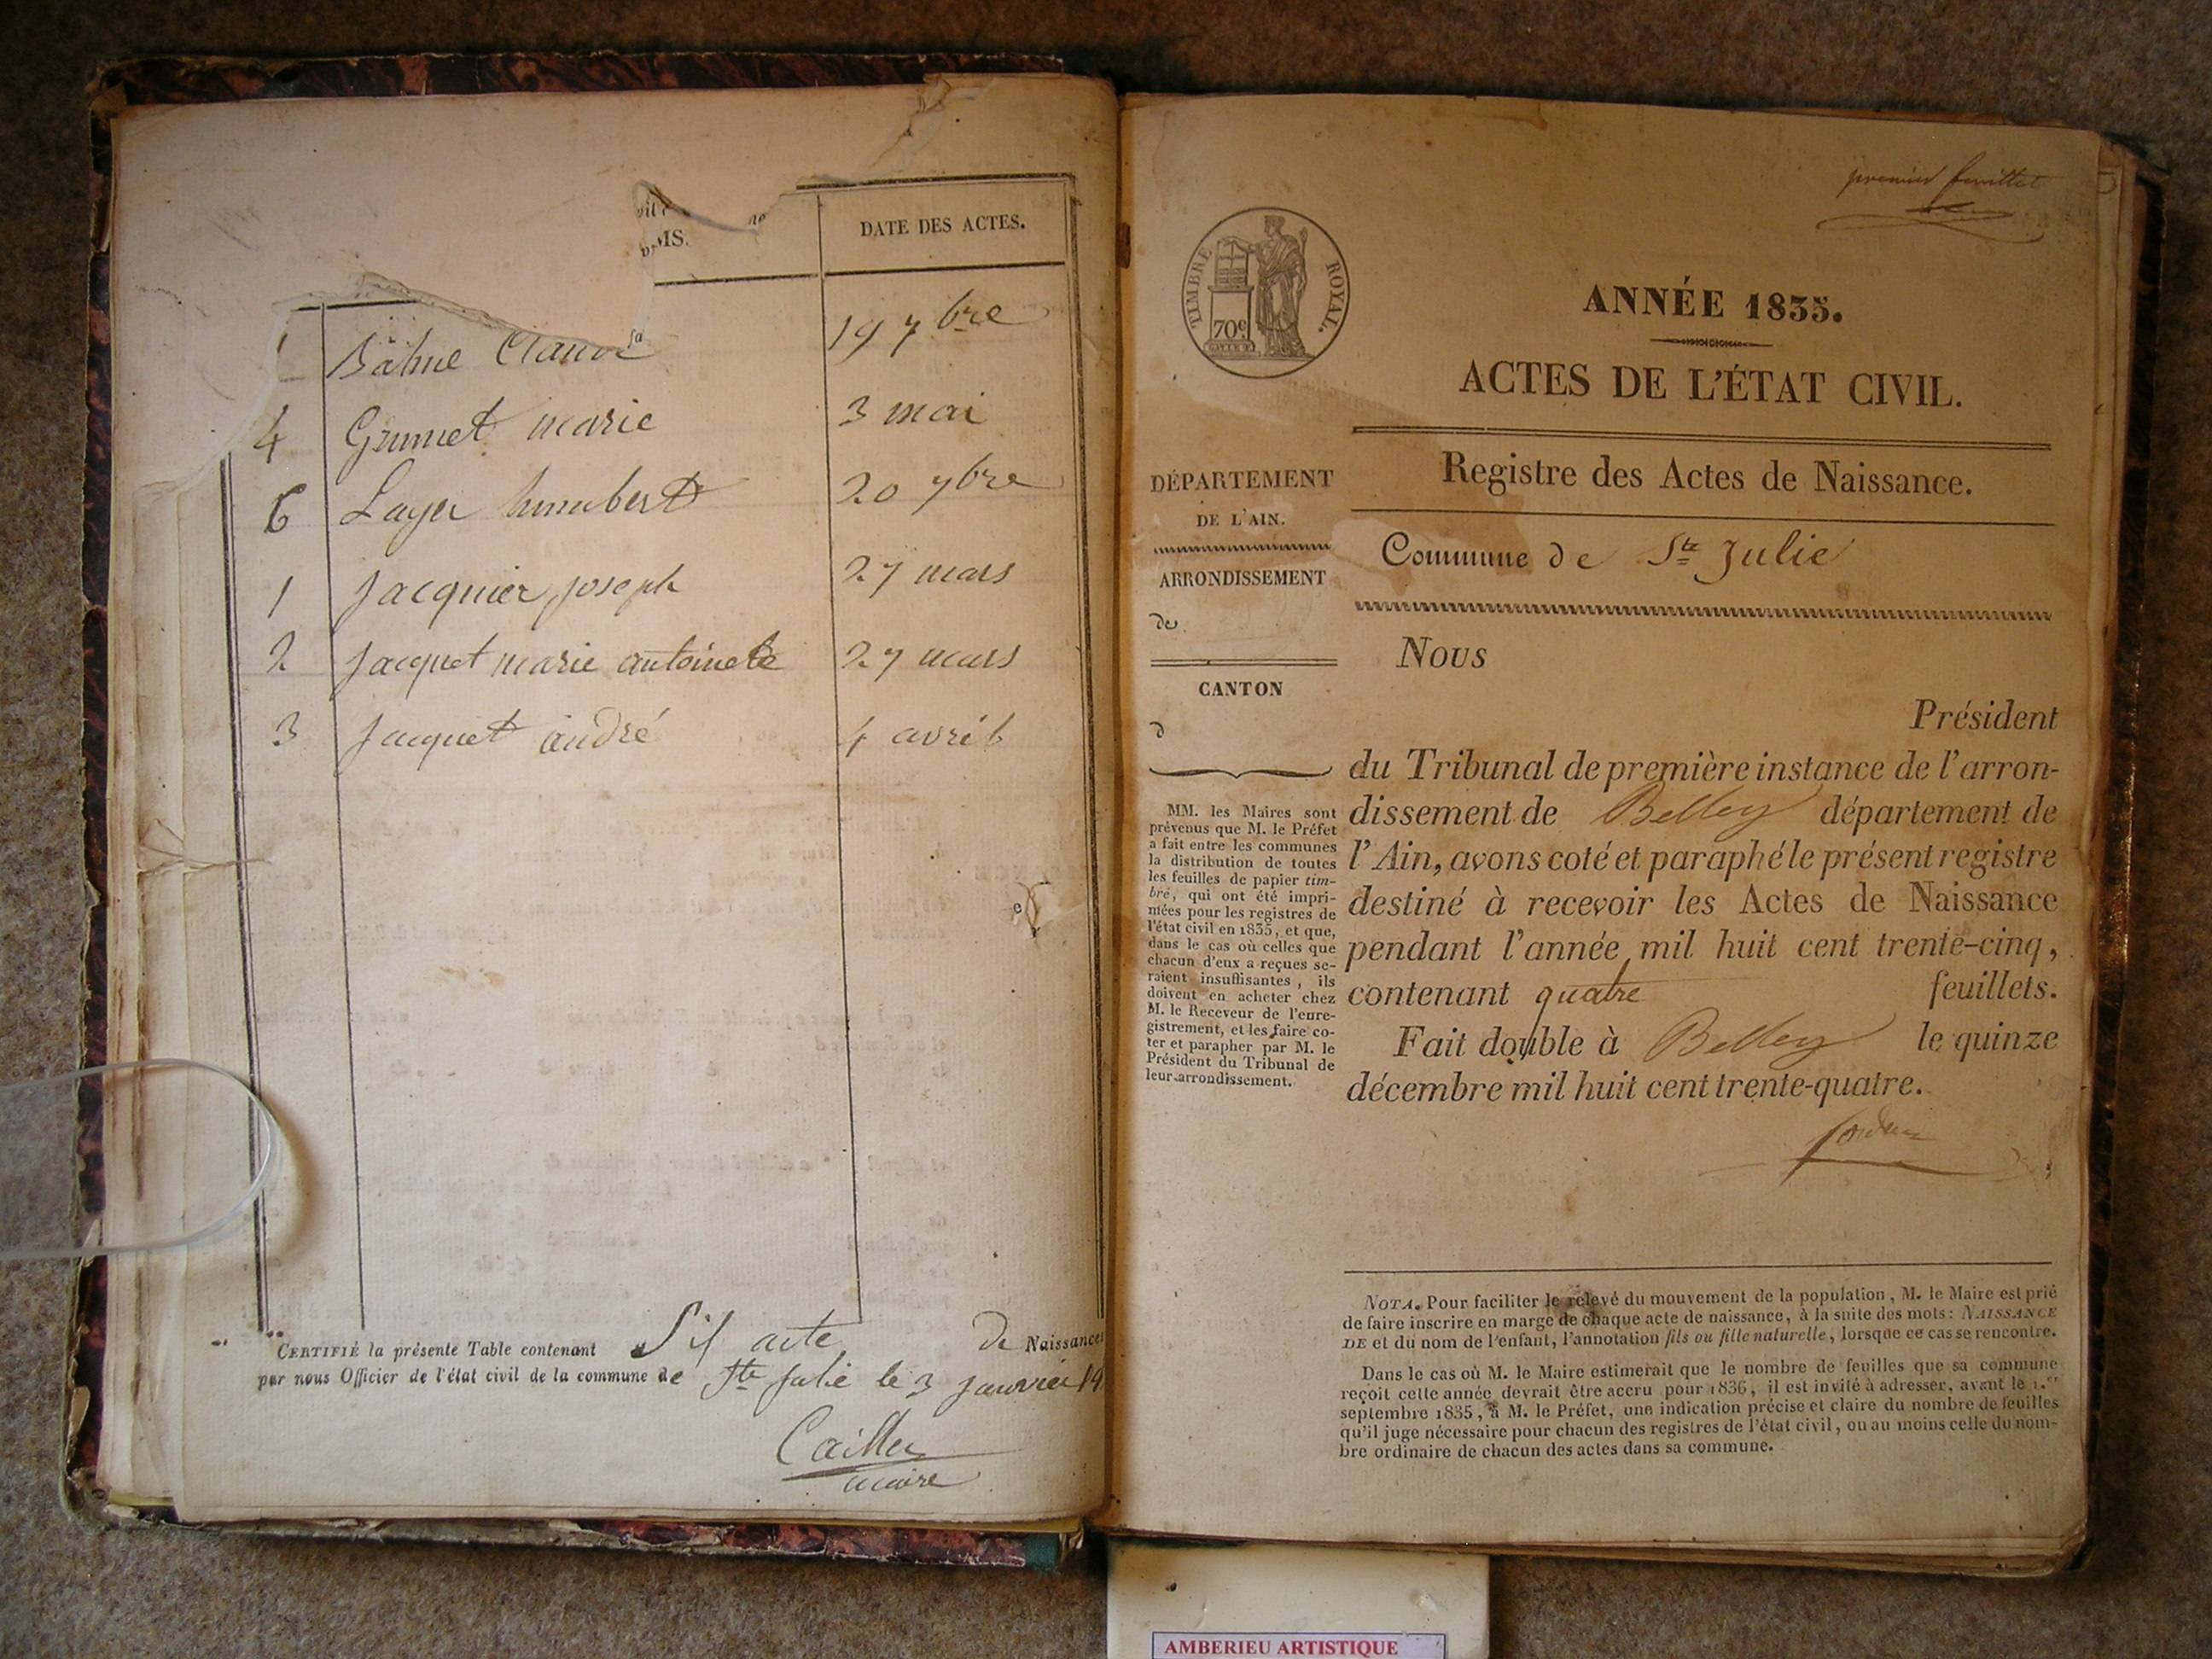 DATE DES ACTES.
19 7bre
4 Grumet marie 3 mai
6 Layer humbert 20 7bre
1 Jacquier joseph 27 mars
2 Jacquet marie antoinete 27 mars
3 Jacquet andré 4 avril
CERTIFIÉ la présente Table contenant Six acte de Naissances
par nous Officier de l'état civil de la commune de Ste Julie le 3 janvier
maire
premier feuillet
TIMBRE ROYAL.
70c
ANNÉE 1835.
ACTES DE L'ÉTAT CIVIL.
Registre des Actes de Naissance.
Commune de Ste Julie
DÉPARTEMENT
DE L'AIN.
ARRONDISSEMENT
de
CANTON
d
MM. les Maires sont
prévenus que M. le Préfet
a fait entre les communes
la distribution de toutes
les feuilles de papier tim-
bré, qui ont été impri-
mées pour les registres de
l'état civil en 1835, et que,
dans le cas où celles que
chacun d'eux a reçues se-
raient insuffisantes, ils
doivent en acheter chez
M. le Receveur de l'enre-
gistrement, et les faire co-
ter et parapher par M. le
Président du Tribunal de
leur arrondissement.
Nous
Président
du Tribunal de première instance de l'arron-
dissement de Belley département de
l'Ain, avons coté et paraphé le présent registre
destiné à recevoir les Actes de Naissance
pendant l'année mil huit cent trente-cinq,
contenant quatre feuillets.
Fait double à Belley le quinze
décembre mil huit cent trente-quatre.
NOTA. Pour faciliter le relevé du mouvement de la population, M. le Maire est prié
de faire inscrire en marge de chaque acte de naissance, à la suite des mots: NAISSANCE
DE et du nom de l'enfant, l'annotation fils ou fille naturelle, lorsque ce cas se rencontre.
Dans le cas où M. le Maire estimerait que le nombre de feuilles que sa commune
reçoit cette année devrait être accru pour 1836, il est invité à adresser, avant le 1.er
septembre 1835, à M. le Préfet, une indication précise et claire du nombre de feuilles
qu'il juge nécessaire pour chacun des registres de l'état civil, ou au moins celle du nom-
bre ordinaire de chacun des actes dans sa commune.
AMBERIEU ARTISTIQUE